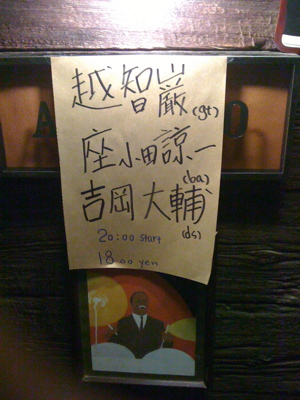 越智巌(gt)
座小田諒一
(ba)
吉岡大輔
(ds)
20:00 start
18,00 yen